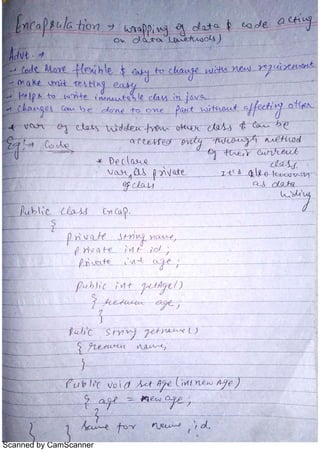 Encapsulation → wrapping of data & code acting
on data (methods)
Advt. →
→ Code More flexible & easy to change with new requirement
→ make unit testing easy
→ Helps to write immutable class in java
→ Changes can be done to one part without affecting other
* var of class hidden from other class & can be
accessed only through method
of their current
class.
Eg:→ Code
* Declare
var, as private
of class
It's also known
as data
hiding
Public class Encap.
{
Private string name,
Private int id ;
Private int age ;
Public int getAge()
{ return age;
}
Public String getname()
{ return name,
}
Public void set Age (int new Age)
{ age = new age ;
}
} Same for name, id.
}
Scanned by CamScanner